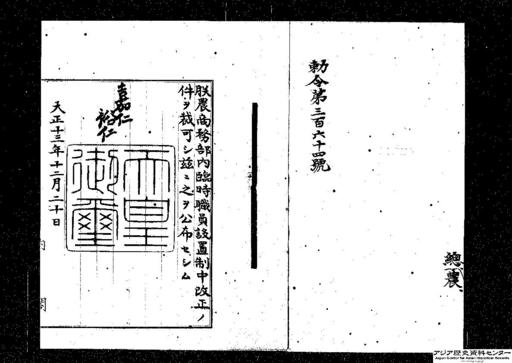 勅令第三百六十四號
總農
朕農商務部内臨時職員設置制中改正ノ
件ヲ裁可シ茲ニ之ヲ公布セシム
嘉仁
裕仁
天皇
御璽
大正十三年十二月二十日
内閣
アジア歴史資料センター
Japan Center for Asian Historical Records